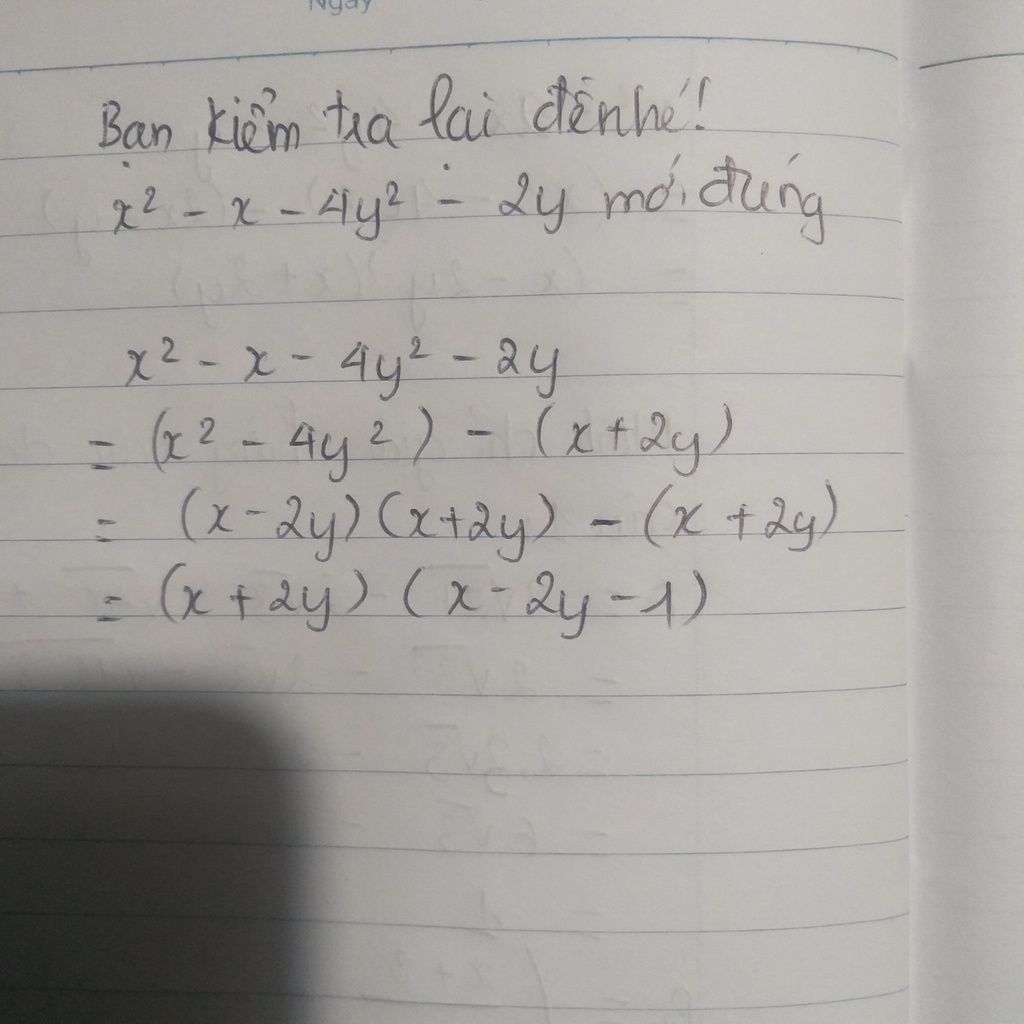 Ngày
Bạn kiểm tra lại đề nhé!
x² - x - 4y² - 2y mới đúng
x² - x - 4y² - 2y
= (x² - 4y²) - (x + 2y)
= (x - 2y)(x + 2y) - (x + 2y)
= (x + 2y) (x - 2y - 1)